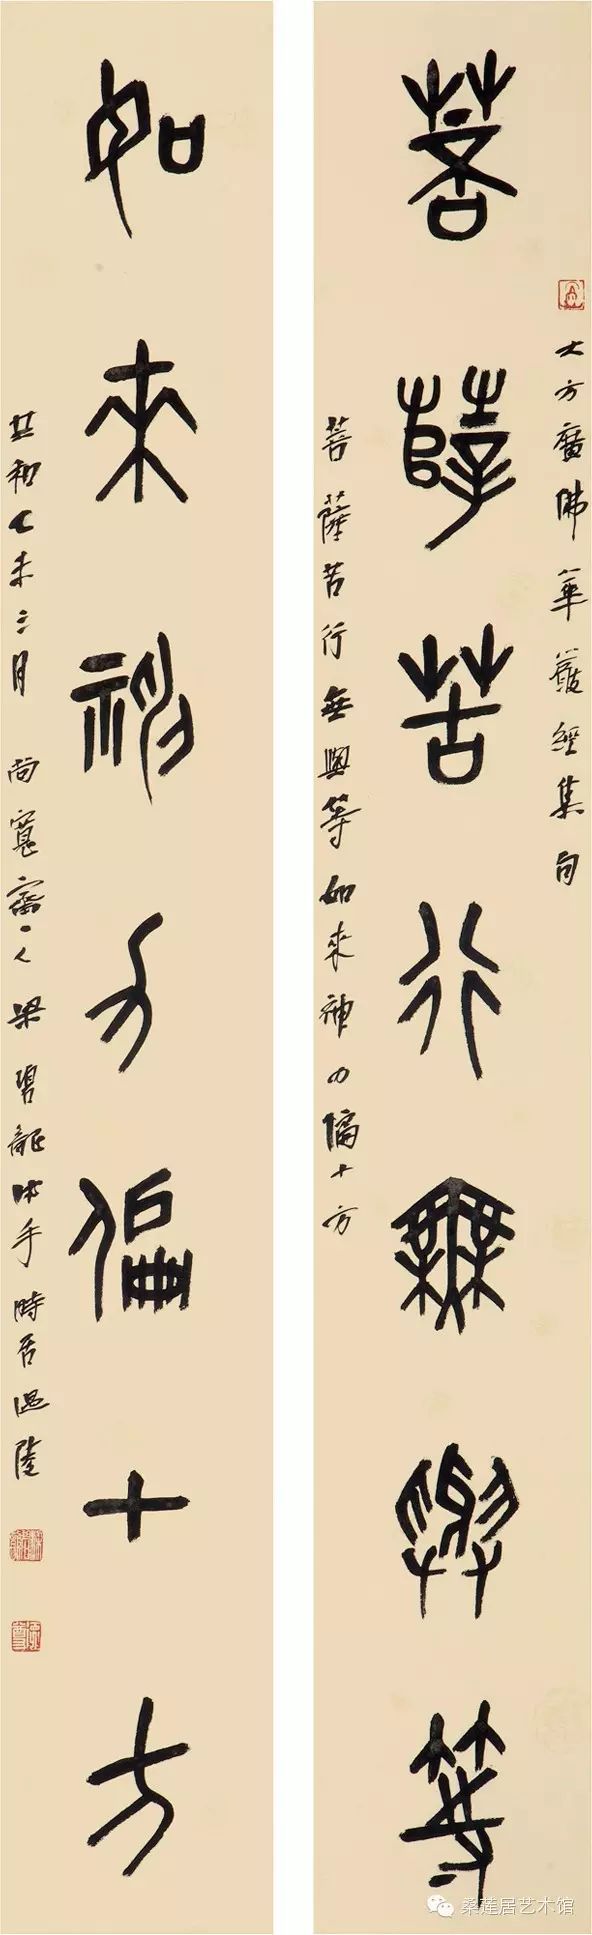 大方廣佛華嚴經集句
菩薩苦行無與等
菩薩苦行無與等如來神力偏十方
如來神力偏十方
共和乙未三月 尚寬齋主人 梁碧龍沐手 時居温陵
桑莲居艺术馆